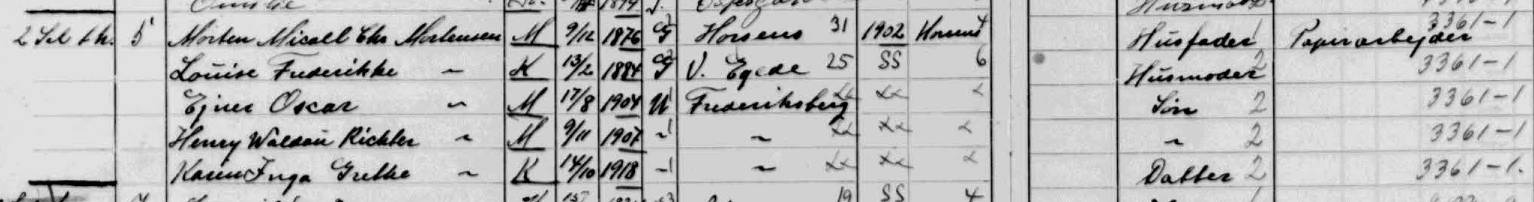 2 Sal th. 5 Morten Micall Chr Mortensen M 9/12 1876 G Horsens 31 1902 Horsens 4 Husfader 1 Papirarbejder 3361-1
Louise Frederikke - K 13/2 1884 G V. Egede 25 SS 6 Husmoder 2 3361-1
Ejner Oscar - M 17/8 1904 U Frederiksberg Søn 2 3361-1
Henry Waldau Richter - M 9/11 1907 - - - 2 3361-1
Karen Inga Grethe - K 14/10 1918 - - Datter 2 3361-1.
19 SS 4